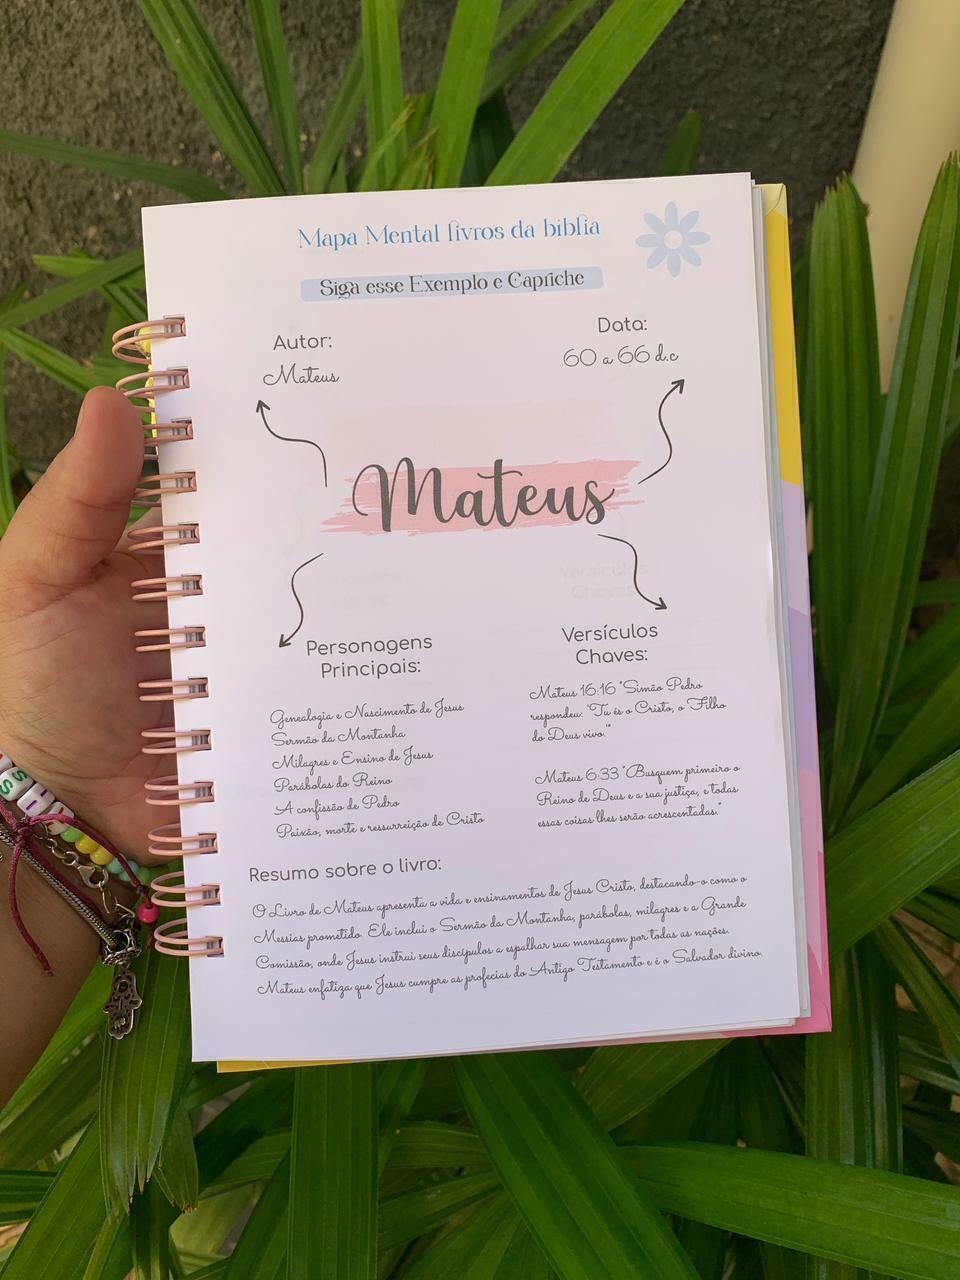 Mapa Mental livros da bíblia
Siga esse Exemplo e Capriche
Autor:
Mateus
Data:
60 a 66 d.c
Mateus
Personagens
Principais:
Genealogia e Nascimento de Jesus
Sermão da Montanha
Milagres e Ensino de Jesus
Parábolas do Reino
A confissão de Pedro
Paixão, morte e ressurreição de Cristo
Versículos
Chaves:
Mateus 16:16 "Simão Pedro
respondeu: 'Tu és o Cristo, o Filho
do Deus vivo.'"
Mateus 6:33 "Busquem primeiro o
Reino de Deus e a sua justiça, e todas
essas coisas lhes serão acrescentadas."
Resumo sobre o livro:
O Livro de Mateus apresenta a vida e ensinamentos de Jesus Cristo, destacando-o como o
Messias prometido. Ele inclui o Sermão da Montanha, parábolas, milagres e a Grande
Comissão, onde Jesus instrui seus discípulos a espalhar sua mensagem por todas as nações.
Mateus enfatiza que Jesus cumpre as profecias do Antigo Testamento e é o Salvador divino.